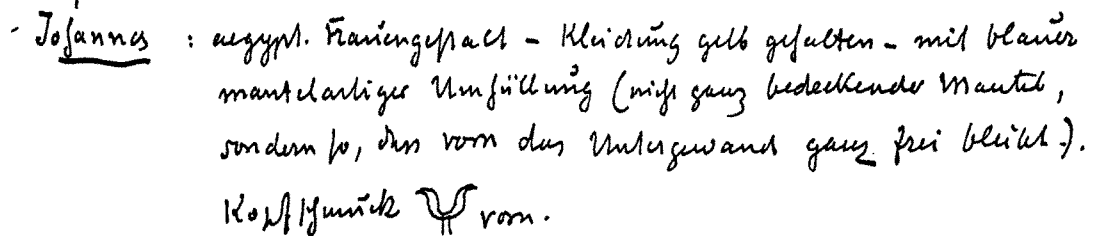 - Johannes : aegypt. Frauengestalt - Kleidung gelb gehalten - mit blauer
mantelartiger Umhüllung (nicht ganz bedeckender Mantel,
sondern so, dass vorn das Untergewand ganz frei bleibt.).
Kopfschmuck vorn.